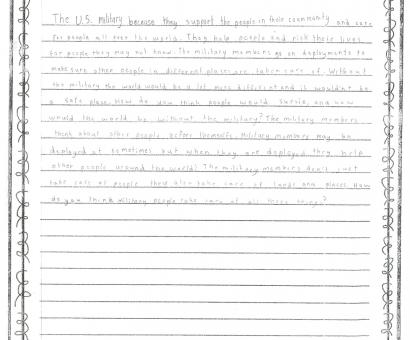 The U.S. military because they support the people in their community and care
for people all over the world. They help people and risk their lives
for people they may not know. The military members go on deployments to
make sure other people in different places are taken care of. Without
the military the world would be a lot more different and it wouldn't be
a safe place. How do you think people would survie, and how
would the world be without the military? The military members
think about other people before themselfs. Military members may be
deployed at sometimes but when they are deployed they help
other people around the world! The military members don't just
take care of people these also take care of lands and places. How
do you think military people take care of all these things?